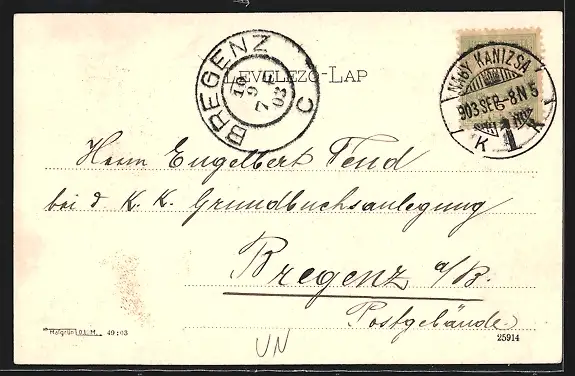 BREGENZ
10 9
7-F
03
C
LEVELEZŐ-LAP
NAGY KANIZSA
903 SEP -8 N 5
K
Herrn Engelbert Fend
bei d. K. K. Grundbuchsanlegung
Bregenz a/B.
Postgebäude.
49:03
25914
UN